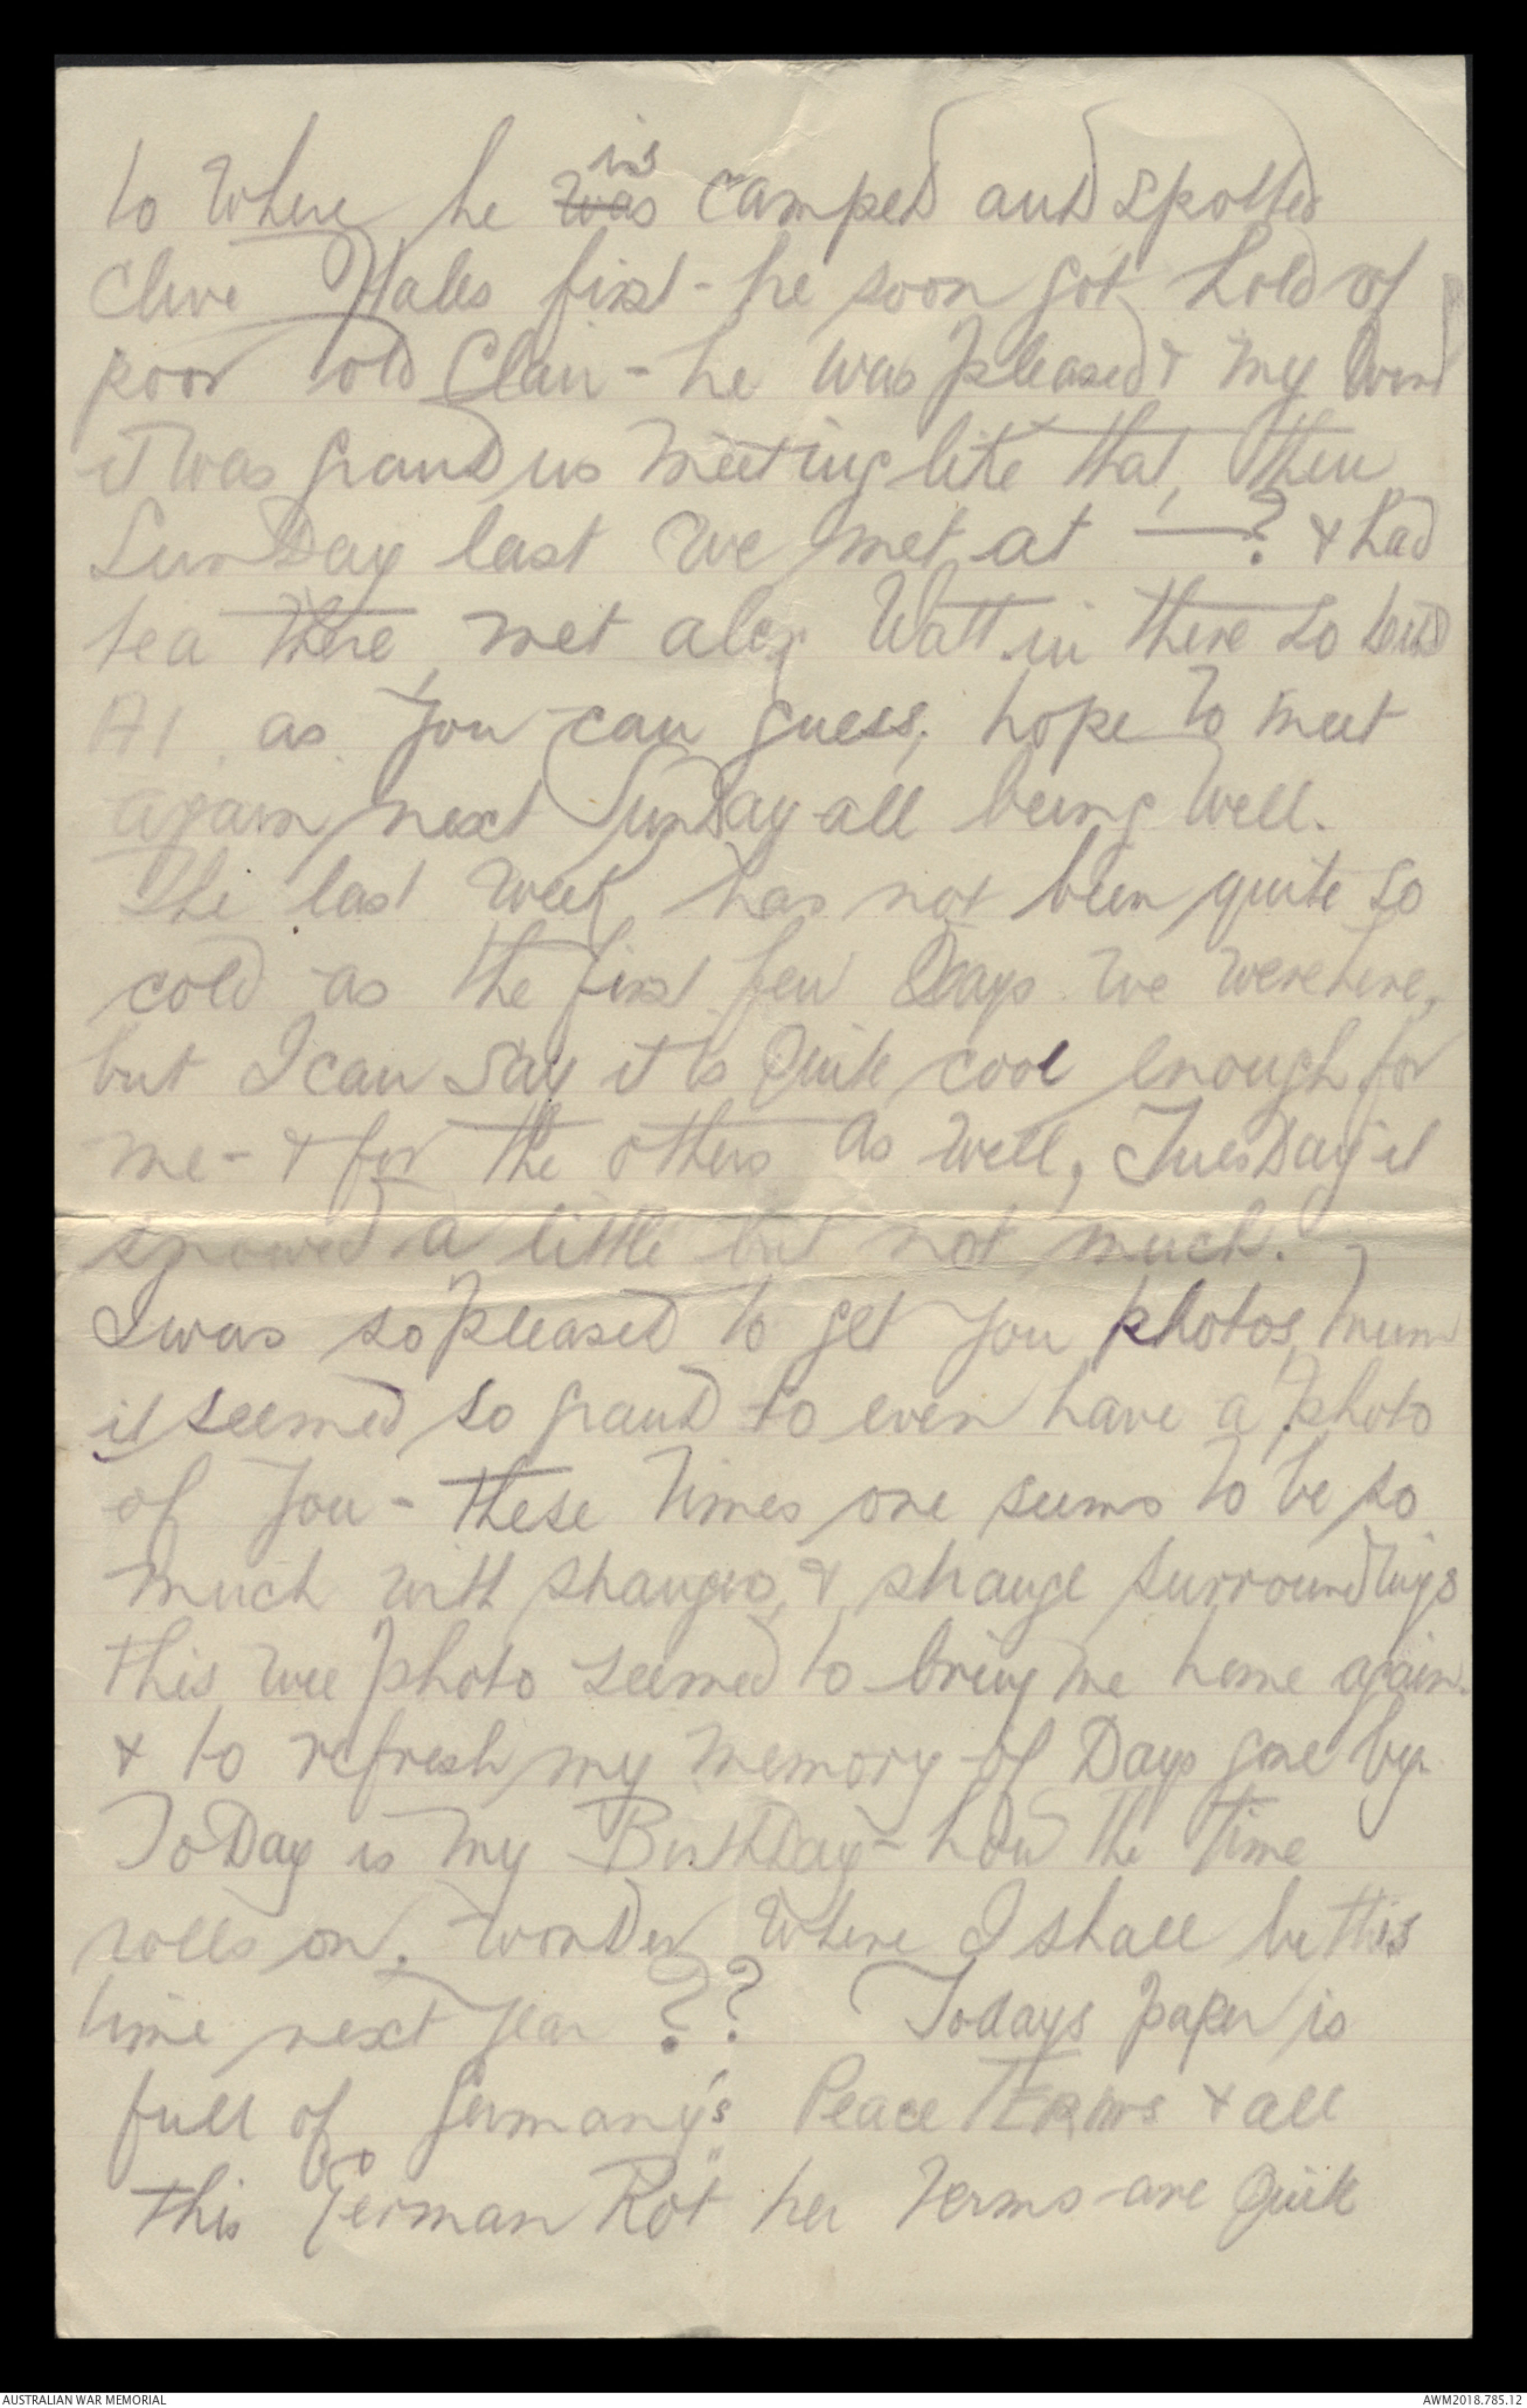 to where he was is camped and spotted
Clive Hales first - he soon got hold of
poor old Clair - he was pleased & my word
it was grand us meeting like that, then
SunDay last we met at —? & had
tea there, met alex Watt in there so
A1. as you can guess, hope to meet
again next SunDay all being well.
The last week, has not been quite so
cold as the first few Days we were here,
but I can say it is quite cool enough for
me - & for the others as well, TuesDay it
snowed a little but not much.
I was so pleased to get you photos, mum
it seemed so grand to even have a photo
of you - these times one seems to be so
much with strangers, & strange surroundings
this wee photo seemed to bring me home again.
& to refresh my memory of Days gone by.
ToDay is my BirthDay - how the time
rolls on. wonder where I shall be this
time next year ?? Todays paper is
full of Germany's Peace TERMS & all
this German Rot her terms are quite
AUSTRALIAN WAR MEMORIAL
AWM2018.785.12